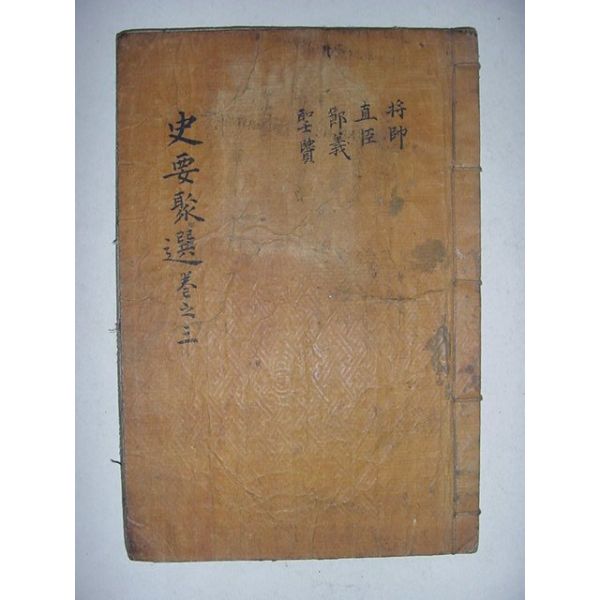 将帥
直臣
節義
聖賢
史要聚選巻之三